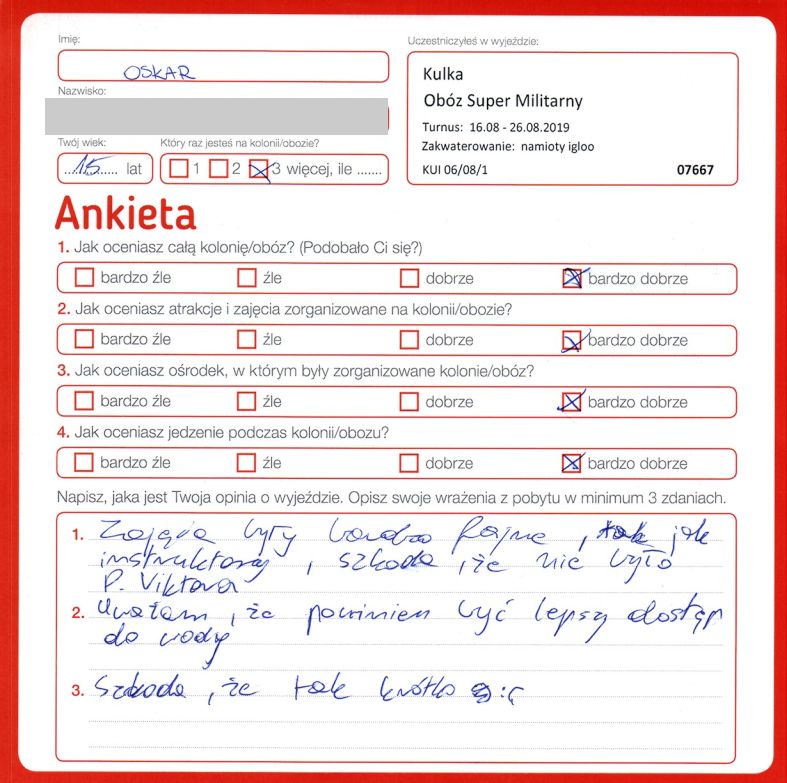 Imię:
OSKAR
Nazwisko:
Twój wiek:
15 lat
Który raz jesteś na kolonii/obozie?
1 2 3 więcej, ile .......
Uczestniczyłeś w wyjeździe:
Kulka
Obóz Super Militarny
Turnus: 16.08 - 26.08.2019
Zakwaterowanie: namioty igloo
KUI 06/08/1 07667
Ankieta
1. Jak oceniasz całą kolonię/obóz? (Podobało Ci się?)
bardzo źle źle dobrze bardzo dobrze
2. Jak oceniasz atrakcje i zajęcia zorganizowane na kolonii/obozie?
bardzo źle źle dobrze bardzo dobrze
3. Jak oceniasz ośrodek, w którym były zorganizowane kolonie/obóz?
bardzo źle źle dobrze bardzo dobrze
4. Jak oceniasz jedzenie podczas kolonii/obozu?
bardzo źle źle dobrze bardzo dobrze
Napisz, jaka jest Twoja opinia o wyjeździe. Opisz swoje wrażenia z pobytu w minimum 3 zdaniach.
1. Zajęcia były bardzo fajne, tak jak
instruktorzy, szkoda, że nie było
P. Viktora
2. Uważam, że powinien być lepszy dostęp
do wody
3. Szkoda, że tak krótko :(